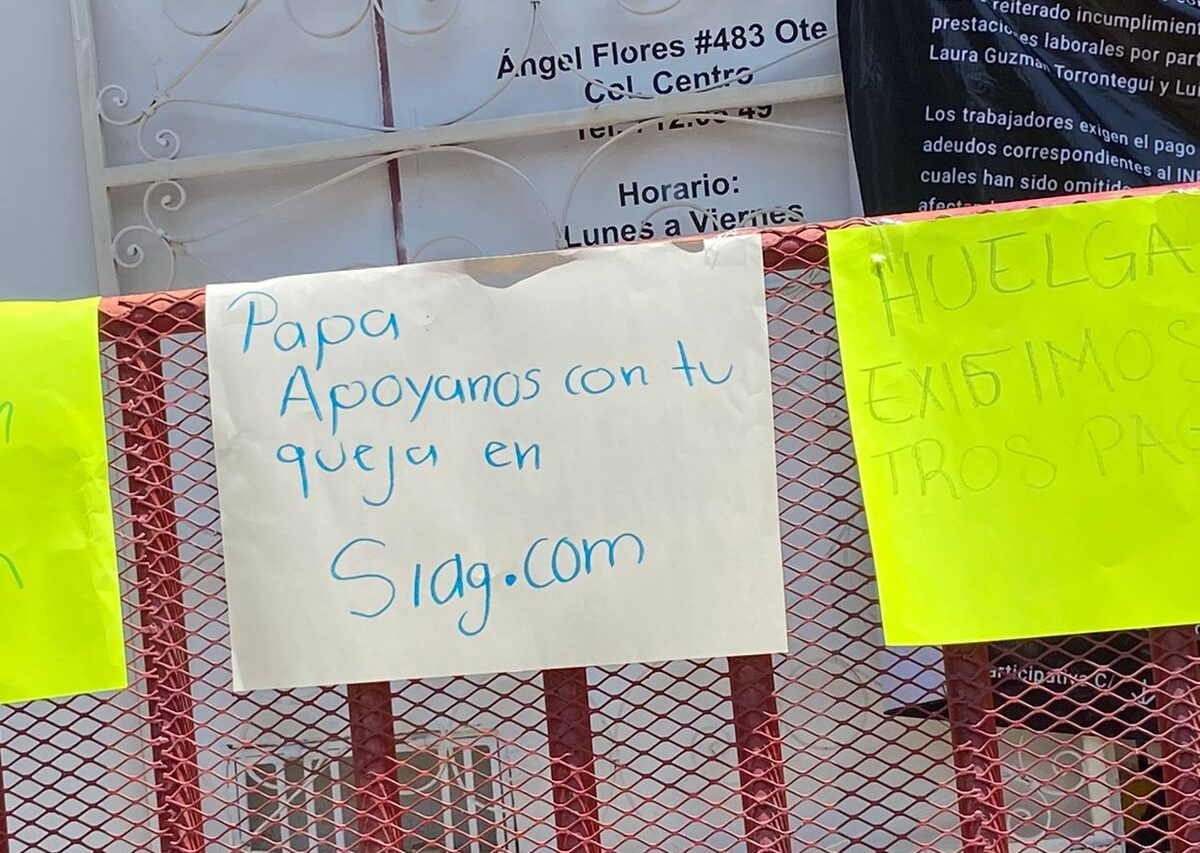 Ángel Flores #483 Ote
Col. Centro
Horario:
Lunes a Viernes
reiterado incumplimien
prestaciones laborales por part
Laura Guzman Torrontegui y Lui
Los trabajadores exigen el pago
adeudos correspondientes al
cuales han sido
Papa
Apoyanos con tu
queja en
Sidg.com
HUELGA
EXIGIMOS
TROS PAG